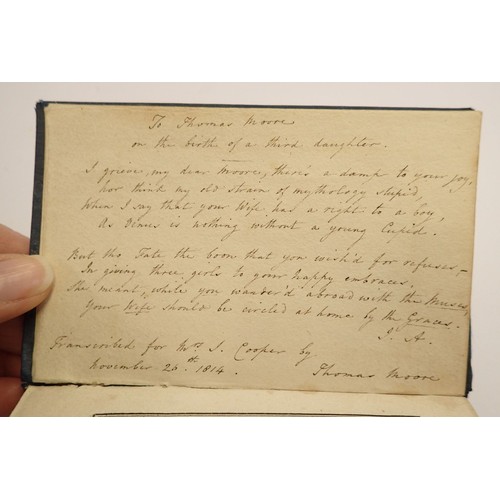 To Thomas Moore
on the birth of a third daughter.
I grieve, my dear Moore, there's a damp to your joy,
Nor think my old strain of mythology stupid,
When I say that your Wife has a right to a boy,
As Venus is nothing without a young Cupid.
But tho' Fate the boon that you wish'd for refuses –
In giving three girls to your happy embraces,
She meant, while you wander'd abroad with the Muses,
Your Wife should be circled at home by the Graces.
J. A.
Transcribed for Mrs. J. Cooper by
November 26th. 1814. Thomas Moore